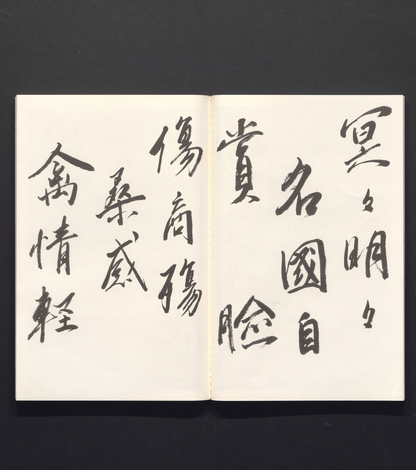 冥々明々
名國自
賞 臉
傷商殤
桑感
禽情軽